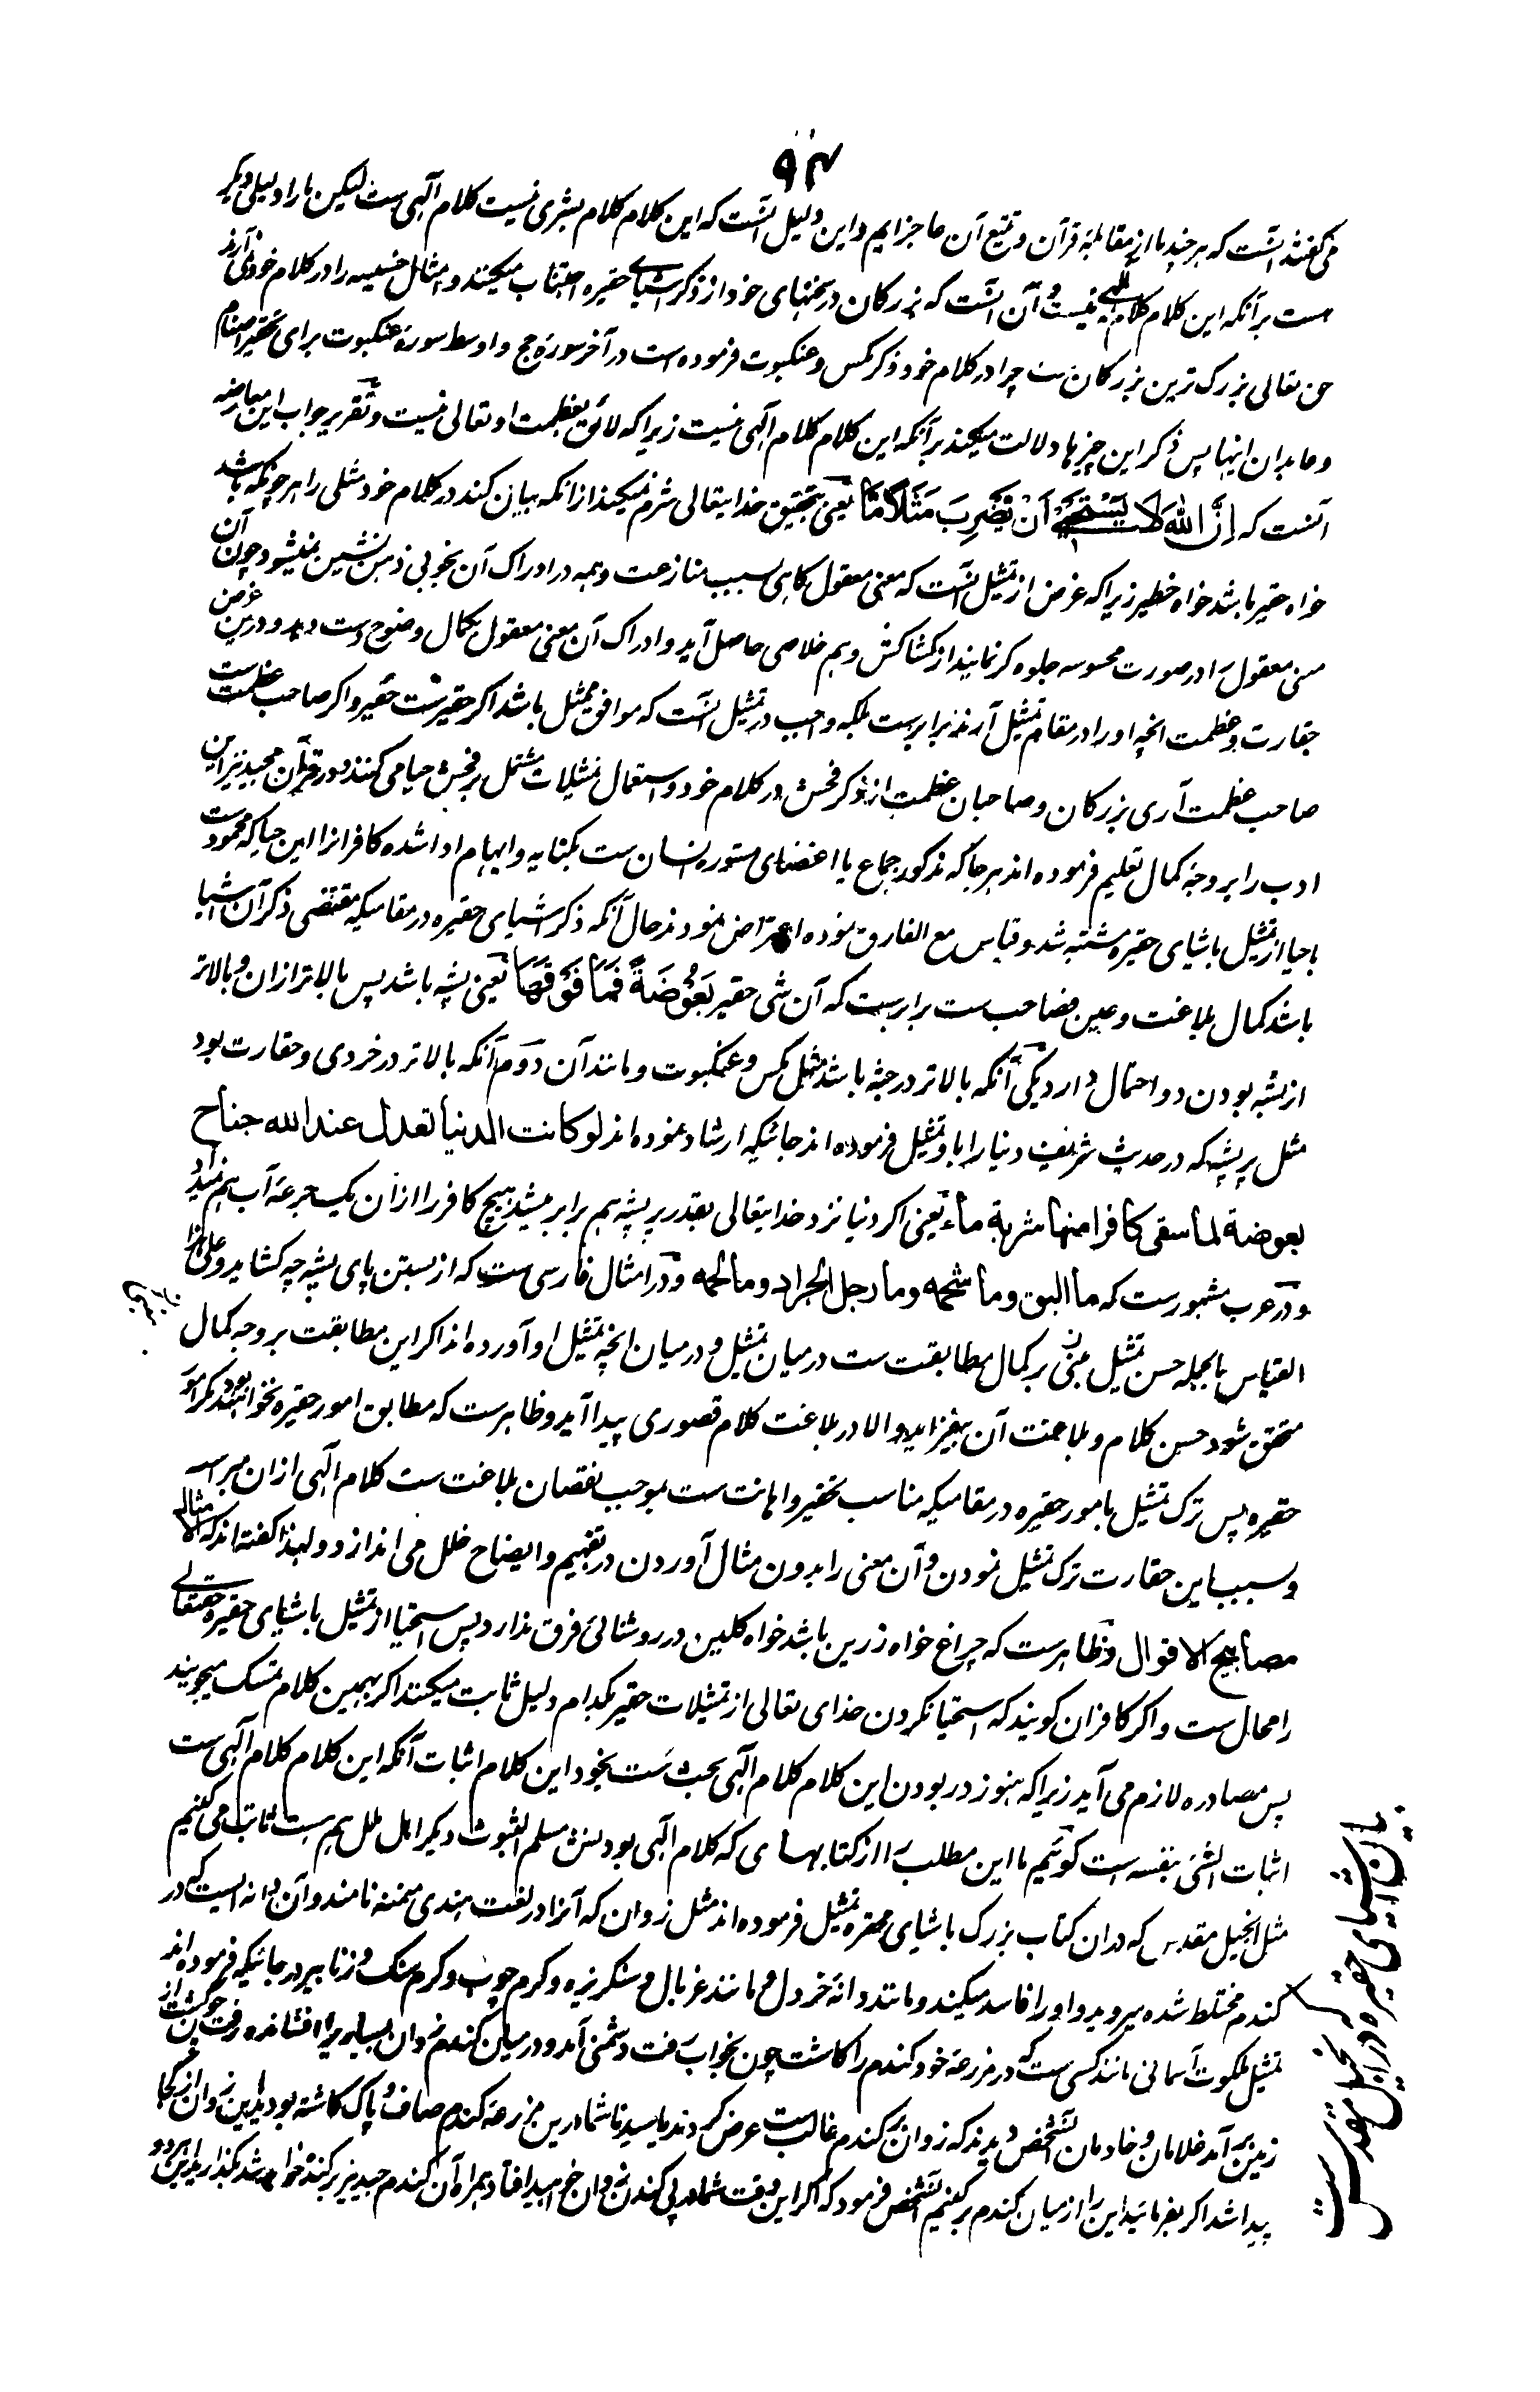 ۹۴
می گفتند اینست که هر چند ما از مقابلهٔ قرآن و تتبع آن عاجز ایم و این دلیل آنست که این کلام کلام بشری نیست کلام الٓهی ست لیکن ما را دلیلی دیگر
هست بر آنکه این کلام کلام الٓهی نیست و آن آنست که بزرگان در سخنهای خود از ذکر اشیای حقیره اجتناب میکنند و امثال خسیسه را در کلام خود نمی آرند
حق تعالی بزرگ ترین بزرگان ست چرا در کلام خود ذکر مگس و عنکبوت فرموده است در آخر سورهٔ حج و اوسط سورهٔ عنکبوت برای تحقیر اصنام
و عابدان اینها پس ذکر این چیزها دلالت میکند بر آنکه این کلام کلام الٓهی نیست زیرا که لائق بعظمت او تعالی نیست و تقریر جواب این معارضه
آنست که اِنَّ اللهَ لَا یَسْتَحْیٖ اَنْ یَّضْرِبَ مَثَلًا مَّا یعنی بتحقیق خدایتعالی شرم نمیکند از انکه بیان کند در کلام خود مثلی را هر چونکه باشد
خواه حقیر باشد خواه خطیر زیرا که غرض از تمثیل آنست که معنی معقول گاهی بسبب منازعت وهم در ادراک آن بخوبی ذهن نشین نمیشود چون آن
معنی معقول را در صورت محسوسه جلوه گر نمایند از کشاکش وهم خلاصی حاصل آید و ادراک آن معنی معقول بکمال وضوح دست دهد و درین غرض
حقارت و عظمت انچه او را در مقام تمثیل آرند برابرست بلکه واجب در تمثیل آنست که موافق ممثل باشد اگر حقیرست حقیر و اگر صاحب عظمت ست
صاحب عظمت آری بزرگان و صاحبان عظمت از ذکر فحش در کلام خود و استعمال تمثیلات مشتمل بر فحش حیا می کنند و در قرآن مجید نیز این
ادب را بر وجه کمال تعلیم فرموده اند هر جا که مذکور جماع یا اعضای مستوره انسان ست بکنایه و ایهام ادا شده کافرانرا این حیا که محمود ست
با حیا از تمثیل باشیای حقیره مشتبه شد و قیاس مع الفارق نموده اعتراض نمودند حال آنکه ذکر اشیای حقیره در مقامیکه مقتضی ذکر آن اشیا
باشد کمال بلاغت و عین فصاحت ست برابرست که آن شی حقیر بَعُوْضَةً فَمَا فَوْقَهَا یعنی پشه باشد پس بالاتر ازان و بالاتر
از پشه بودن دو احتمال دارد یکی آنکه بالاتر در جثه باشد مثل مگس و عنکبوت و مانند آن دوم آنکه بالاتر در خردی و حقارت بود
مثل پر پشه که در حدیث شریف دنیا را باو تمثیل فرموده اند جائیکه ارشاد نموده اند لو کانت الدنیا تعدل عند الله جناح
بعوضة لما سقی کافرا منها شربة ماء یعنی اگر دنیا نزد خدایتعالی بقدر پر پشه هم برابر میشد هیچ کافر را ازان یک جرعه آب هم نمیداد
و در عرب مشهورست که ما البق و ما شحمه و ما رجل الجراد و ما لحمه و در امثال فارسی ست که از بستن پای پشه چه کشاید و علی هذا
القیاس بالجمله حسن تمثیل مبنی بر کمال مطابقت ست در میان تمثیل و درمیان انچه تمثیل او آورده اند اگر این مطابقت بر وجه کمال
متحقق شود حسن کلام و بلاغت آن بیفزاید و الا در بلاغت کلام قصوری پیدا آید و ظاهرست که مطابق امور حقیره نخواهند بود مگر امور
حقیره پس ترک تمثیل بامور حقیره در مقامیکه مناسب تحقیر و اهانت ست موجب نقصان بلاغت ست کلام الٓهی ازان مبراست
و بسبب این حقارت ترک تمثیل نمودن و آن معنی را بدون مثال آوردن در تفهیم و ایضاح خلل می اندازد و لهذا گفته اند که الامثال
مصابیح الاقوال و ظاهرست که چراغ خواه زرین باشد خواه گلین در روشنائی فرق ندارد پس استحیا از تمثیل باشیای حقیره حقتعالی
را محال ست و اگر کافران گویند که استحیا نکردن خدای تعالی از تمثیلات حقیر بکدام دلیل ثابت میکنند اگر بهمین کلام تمسک میجویند
پس مصادره لازم می آید زیرا که هنوز در بودن این کلام کلام الٓهی بحث ست بخود این کلام اثبات آنکه این کلام کلام الٓهی ست
اثبات الشئ بنفسه است گوئیم ما این مطلب را از کتابهای که کلام الٓهی بودنش مسلم الثبوت دیگر اهل ملل هم ست ثابت می کنیم
مثل انجیل مقدس که دران کتاب بزرگ باشیای محقره تمثیل فرموده اند مثل زوان که آنرا در لغت هندی منمنه نامند و آن دانه ایست که در
گندم مختلط شده میروید و او را فاسد میکند و مانند دانهٔ خردل و مانند غربال و سنگریزه و کرم چوب و کرم سنگ و زنابیر در جائیکه فرموده اند
تمثیل ملکوت آسمانی مانند کسی ست که در مزرعهٔ خود گندم را کاشت چون بخواب رفت دشمنی آمد و درمیان گندم زوان بسیار را افشانده رفت چون کشت از
زمین بر آمد غلامان و خادمان آنشخص دیدند که زوان بر گندم غالب ست عرض کردند یا سیدنا شما درین مزرعه گندم صاف و پاک کاشته بودید این زوان از کجا
پیدا شد اگر بفرمائید این را از میان گندم بر کنیم آنشخص فرمود که اگر این وقت شما در پی کندن زوان خواهید افتاد همراه آن گندم جید نیز بر کنده خواهد شد بگذارید این هر دو
بیان اشیای حقیره که در انجیل مقدس ست